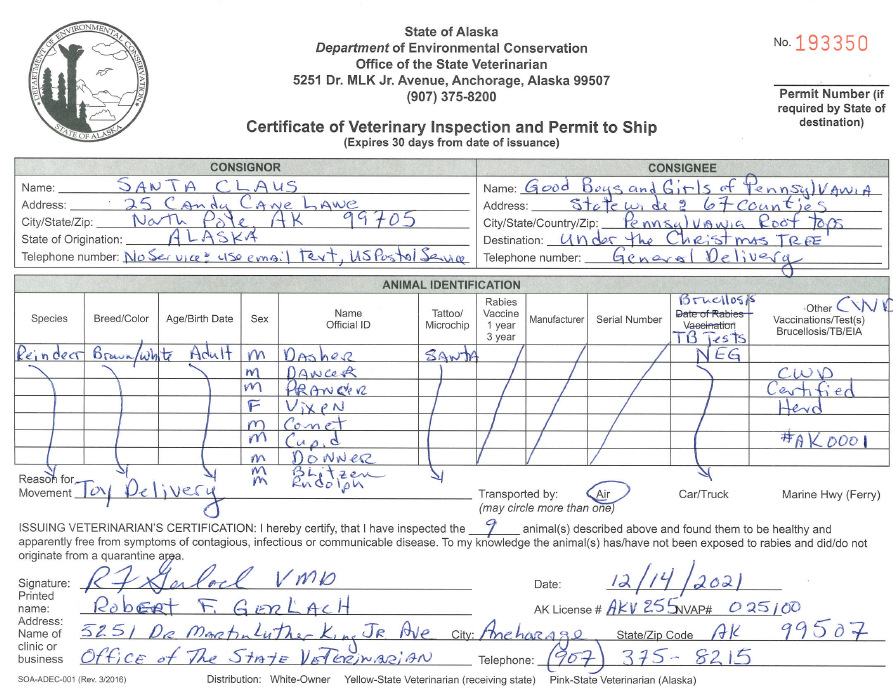 State of Alaska
Department of Environmental Conservation
Office of the State Veterinarian
5251 Dr. MLK Jr. Avenue, Anchorage, Alaska 99507
(907) 375-8200
No. 193350
Permit Number (if
required by State of
destination)
DEPARTMENT OF ENVIRONMENTAL CONSERVATION
STATE OF ALASKA
Certificate of Veterinary Inspection and Permit to Ship
(Expires 30 days from date of issuance)
CONSIGNOR
Name: SANTA CLAUS
Address: 25 Candy Cane Lane
City/State/Zip: North Pole, AK 99705
State of Origination: ALASKA
Telephone number: No Service: use email Text, US Postal Service
CONSIGNEE
Name: Good Boys and Girls of Pennsylvania
Address: Statewide: 67 Counties
City/State/Country/Zip: Pennsylvania Roof Tops
Destination: Under the Christmas TREE
Telephone number: General Delivery
ANIMAL IDENTIFICATION
Species Breed/Color Age/Birth Date Sex Name Official ID Tatto/ Microchip Rabies Vaccine 1 year 3 year Manufacturer Serial Number Brucellosis Date of Rabies Vaccination TB Tests Other CWD Vaccinations/Test(s) Brucellosis/TB/EIA
Reindeer Brown/white Adult M Dasher SANTA NEG
M DANCER CWD
M PRANCER Certified
F VIXEN Herd
M Comet
M Cupid #AK0001
M DONNER
M Blitzen
M Rudolph
Reason for
Movement Toy Delivery
Transported by: Air Car/Truck Marine Hwy (Ferry)
(may circle more than one)
ISSUING VETERINARIAN'S CERTIFICATION: I hereby certify, that I have inspected the 9 animal(s) described above and found them to be healthy and
apparently free from symptoms of contagious, infectious or communicable disease. To my knowledge the animal(s) has/have not been exposed to rabies and did/do not
originate from a quarantine area.
Signature: RF Gerlach VMD Date: 12/14/2021
Printed
name: Robert F. GERLACH AK License # AKV 255 NVAP# 025100
Address: 5251 Dr Martin Luther King JR Ave City: Anchorage State/Zip Code AK 99507
Name of
clinic or
business Office of The STATE VETERINARIAN Telephone: (907) 375-8215
SOA-ADEC-001 (Rev. 3/2016) Distribution: White-Owner Yellow-State Veterinarian (receiving state) Pink-State Veterinarian (Alaska)